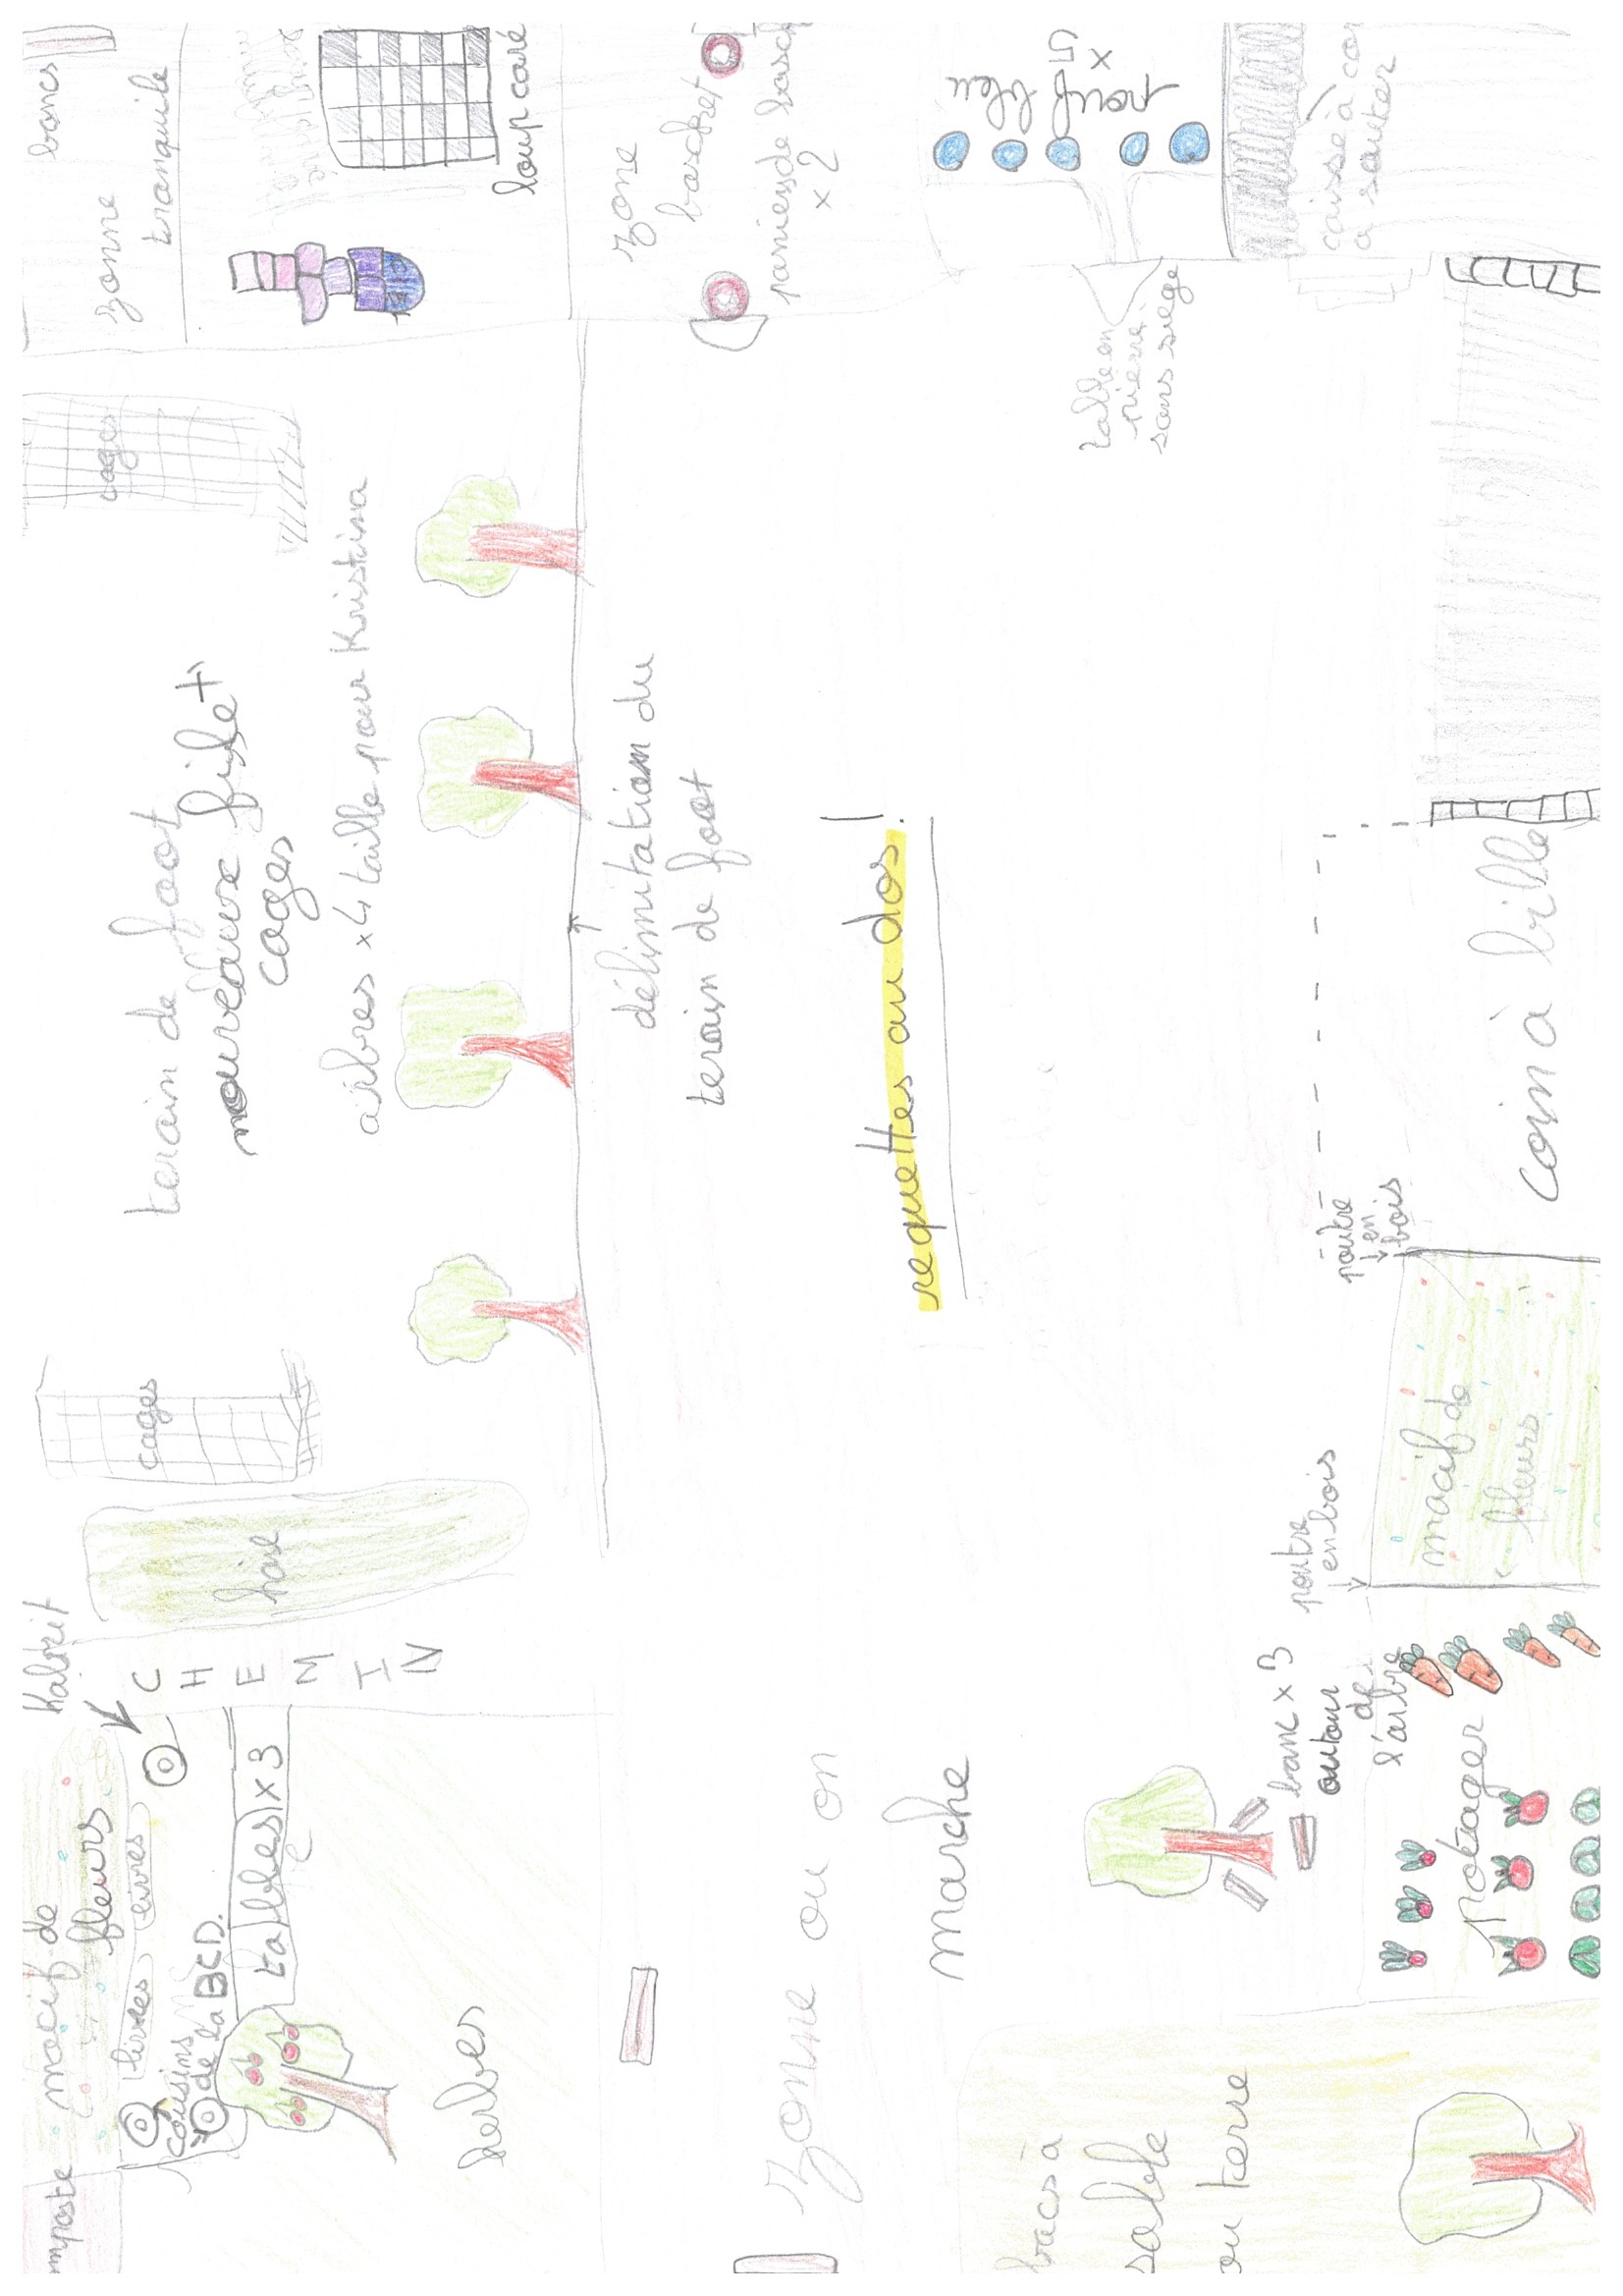 bancs
zonne
tranquile
loup caré
zone
basket
x 2
pouf
bleu
x 5
caisse à cor
a sauter
table en
pierre
sans siège
cages
terain de foot
nouveaux filet +
cages
arbres x 4 taille pour Kristina
délimitation du
terain de foot
requettes au dos.
coin à bille
poutre
en
bois
macif de
fleurs
poutre
en bois
cages
haie
Kabrit
CHEMIN
macif de
fleurs
livres
livres
coisins
de la BCD.
tables x 3
mposte
herbes
zonne ou on
marche
banc x 3
autour
de
l'arbre
potager
bacs à
sable
ou terre